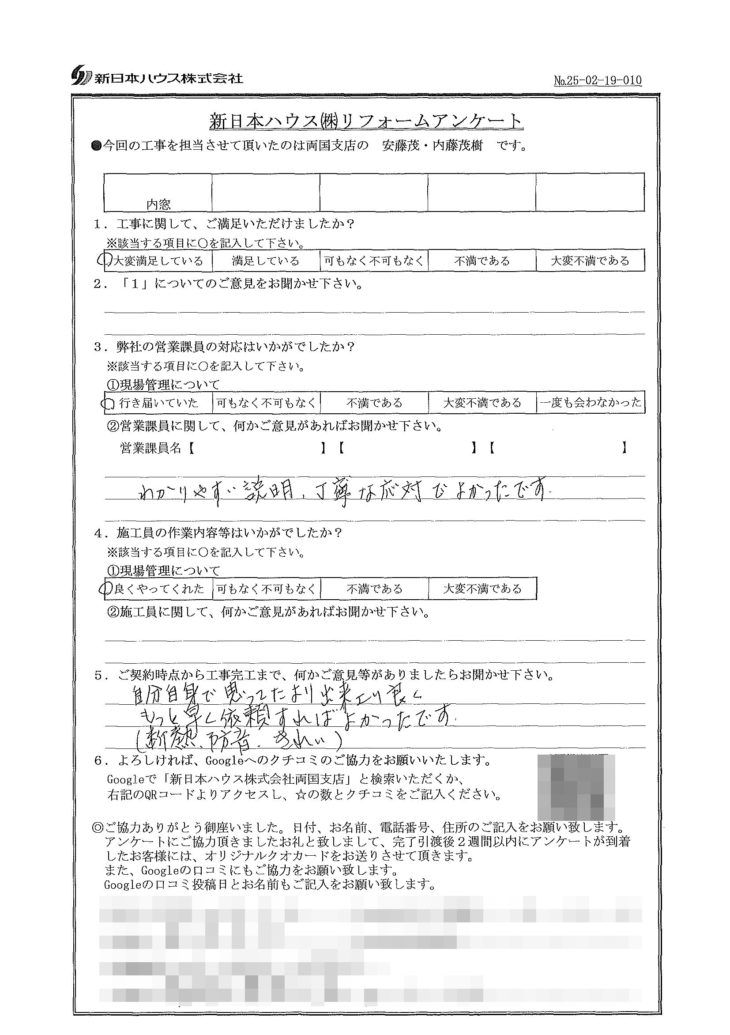 新日本ハウス株式会社
№25-02-19-010
新日本ハウス㈱リフォームアンケート
●今回の工事を担当させて頂いたのは両国支店の 安藤茂・内藤茂樹 です。
内窓
1．工事に関して、ご満足いただけましたか？
※該当する項目に○を記入して下さい。
大変満足している 満足している 可もなく不可もなく 不満である 大変不満である
2．「1」についてのご意見をお聞かせ下さい。
3．弊社の営業課員の対応はいかがでしたか？
※該当する項目に○を記入して下さい。
①現場管理について
行き届いていた 可もなく不可もなく 不満である 大変不満である 一度も会わなかった
②営業課員に関して、何かご意見があればお聞かせ下さい。
営業課員名【 】【 】【 】
わかりやすい説明、丁寧な応対でよかったです。
4．施工員の作業内容等はいかがでしたか？
※該当する項目に○を記入して下さい。
①現場管理について
良くやってくれた 可もなく不可もなく 不満である 大変不満である
②施工員に関して、何かご意見があればお聞かせ下さい。
5．ご契約時点から工事完工まで、何かご意見等がありましたらお聞かせ下さい。
自分自身で思ってたより出来エり良く
もっと早く依頼すればよかったです。
(断熱、防音、きれい)
6．よろしければ、Googleへのクチコミのご協力をお願いいたします。
Googleで「新日本ハウス株式会社両国支店」と検索いただくか、
右記のQRコードよりアクセスし、☆の数とクチコミをご記入ください。
◎ご協力ありがとう御座いました。日付、お名前、電話番号、住所のご記入をお願い致します。
アンケートにご協力頂きましたお礼と致しまして、完了引渡後２週間以内にアンケートが到着
したお客様には、オリジナルクオカードをお送りさせて頂きます。
また、Googleの口コミにもご協力をお願い致します。
Googleの口コミ投稿日とお名前もご記入をお願い致します。